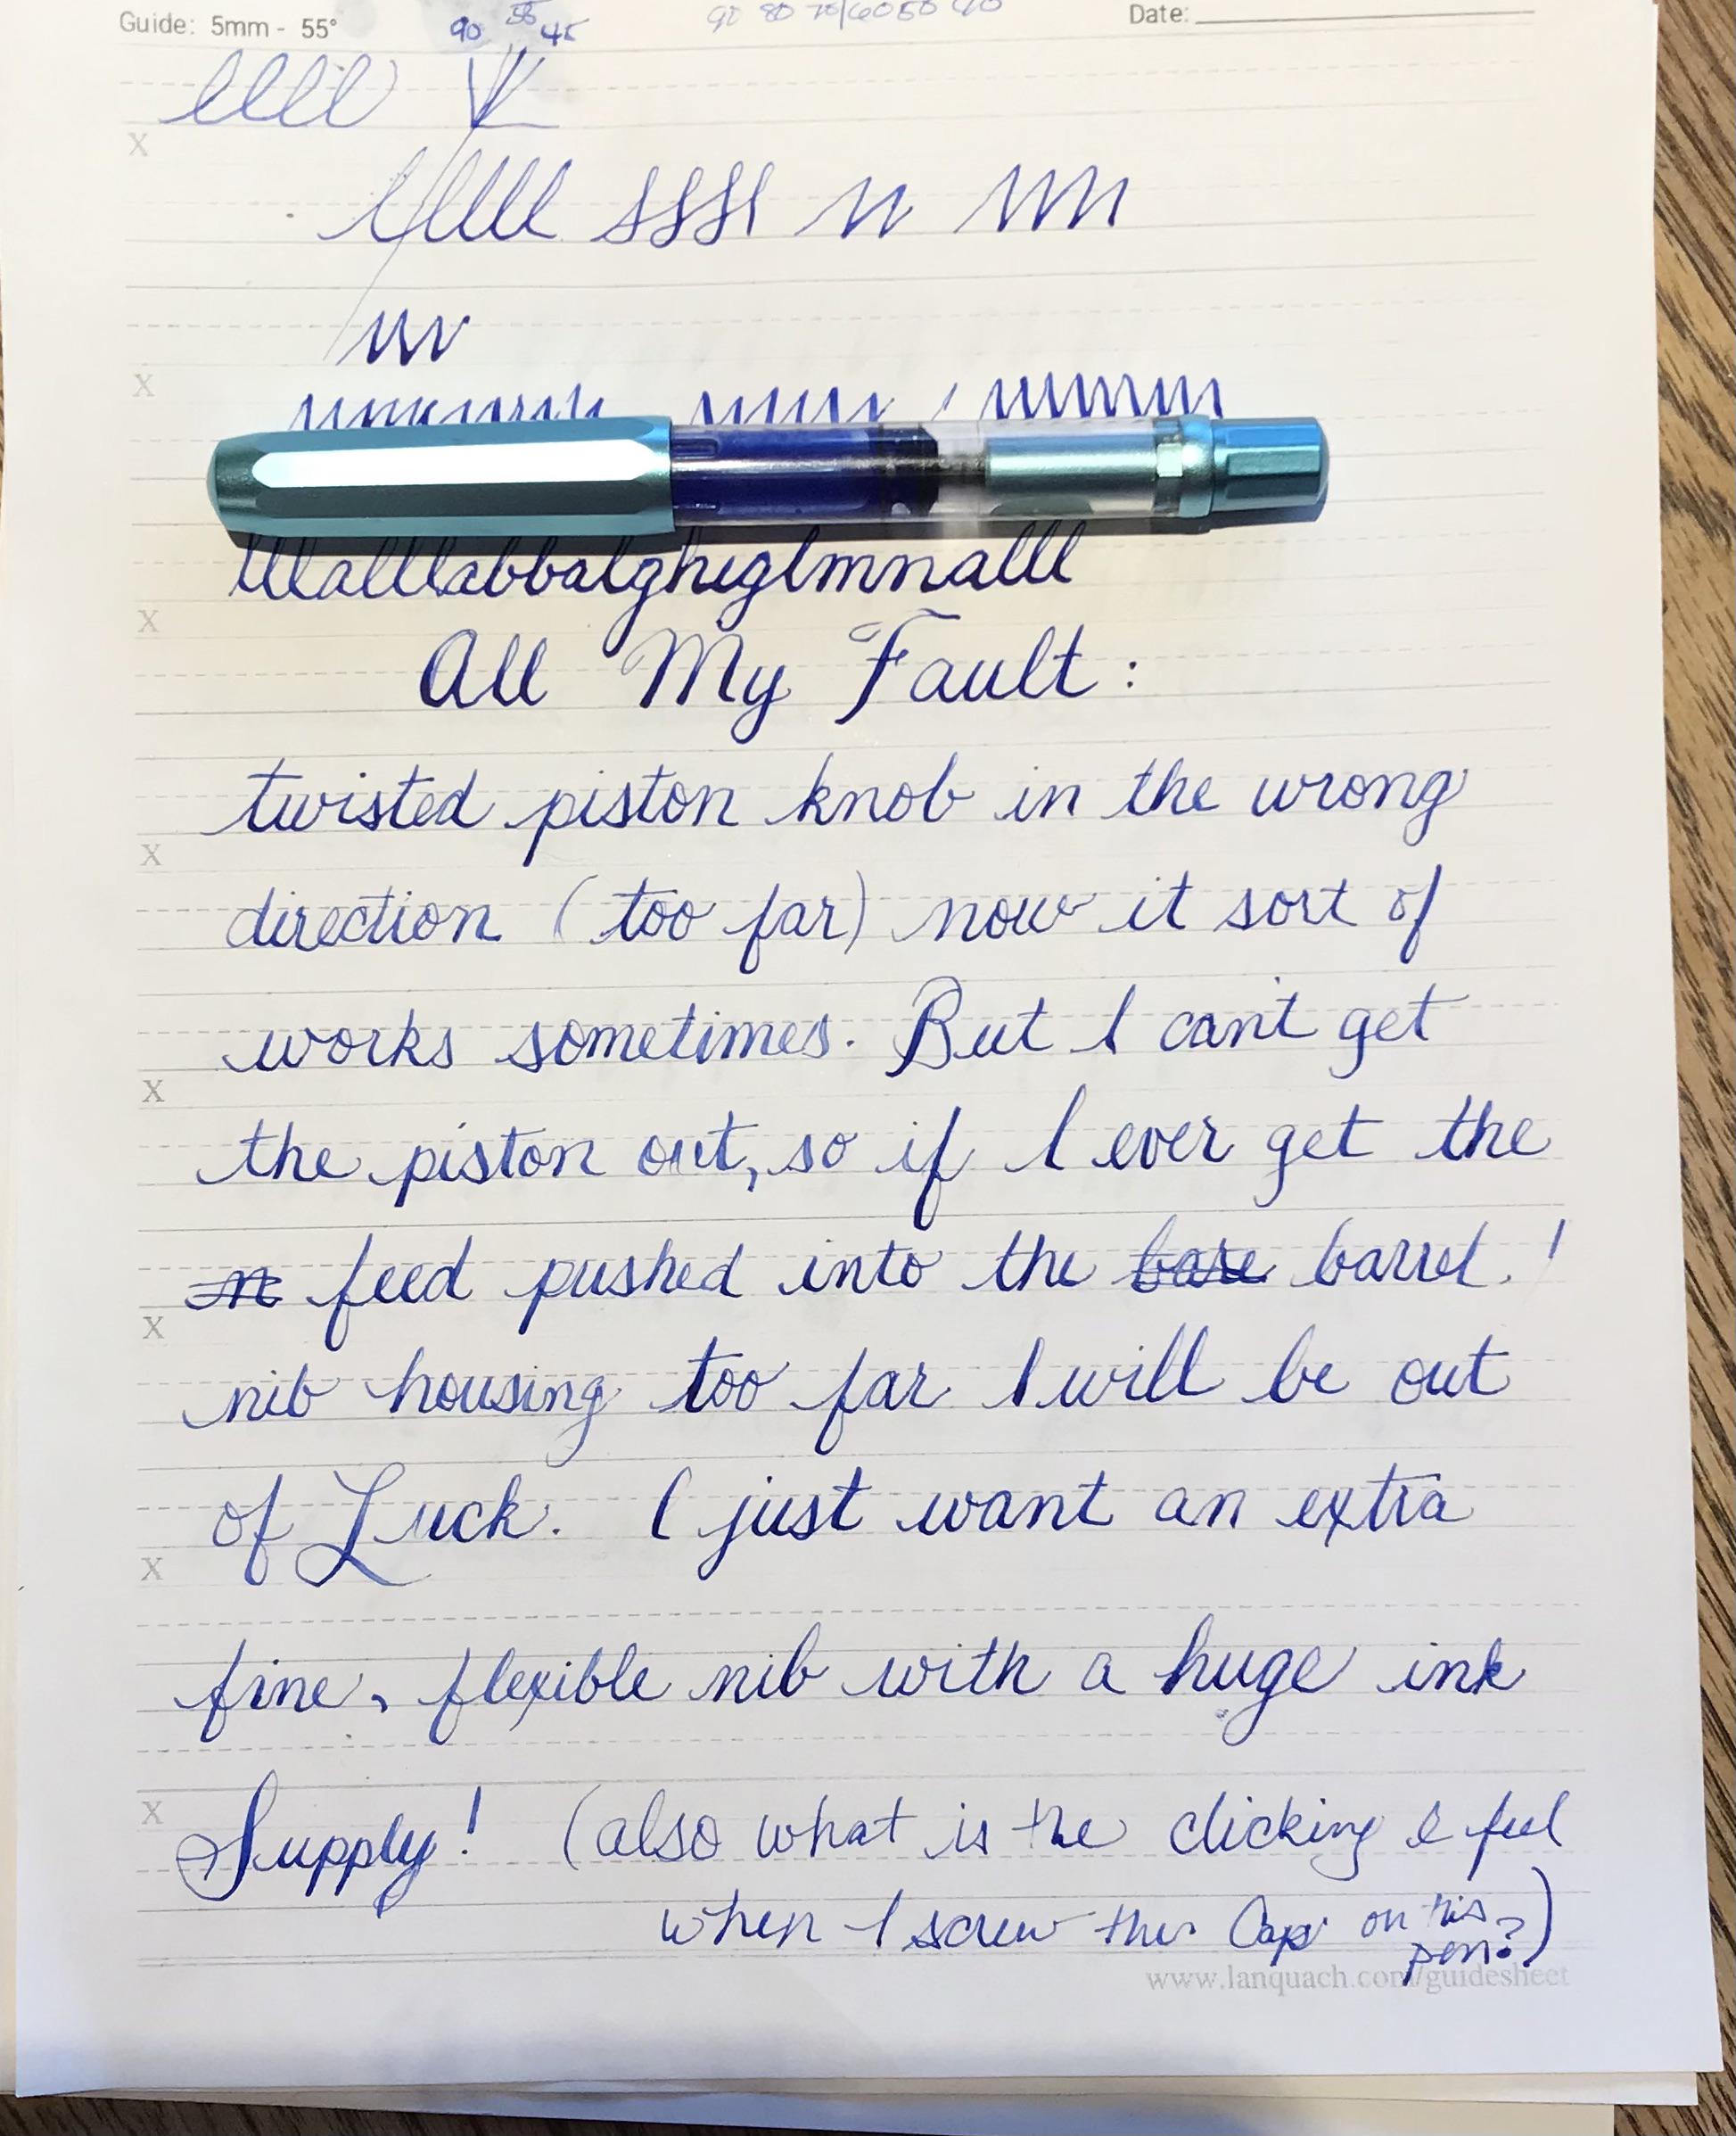 Guide: 5mm - 55°
90 55 45
Date:
llll
x
lllll ssss n nnn
x
lllalllabbalghiglmnalll
x
All My Fault:
twisted piston knob in the wrong
x
direction (too far) now it sort of
works sometimes. But I can't get
x
the piston out, so if I ever get the
feed pushed into the bare barrel. /
x
nib housing too far I will be out
of Luck. I just want an extra
x
fine, flexible nib with a huge ink
x
Supply! (also what is the clicking I feel
when I screw the Cap on this
pen?)
www.lanquach.com/guidesheet